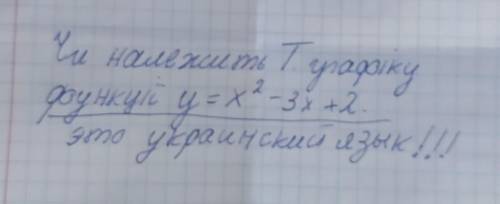 Чи належить Т. графіку
функції y = x² - 3x + 2.
это украинский язык!!!